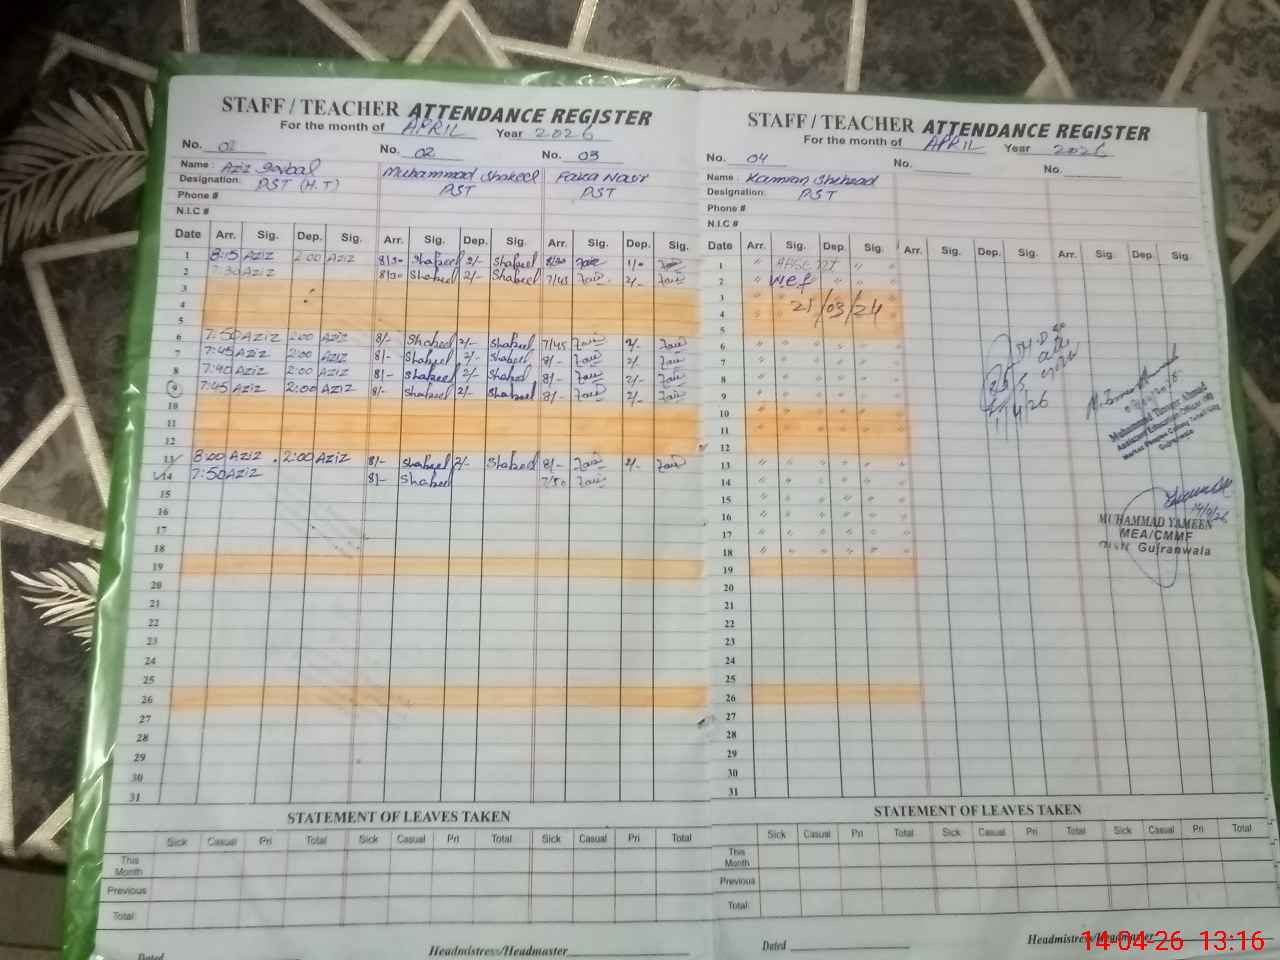 STAFF / TEACHER ATTENDANCE REGISTER
For the month of APRIL Year 2026
No. 01 No. 02 No. 03
Name: Aziz Muhammad Shakeel Faiza Nasir
Designation: PST (H.T) PST PST
Phone #
N.I.C #
Date Arr. Sig. Dep. Sig. Arr. Sig. Dep. Sig. Arr. Sig. Dep. Sig.
1 8:15 AZIZ 2:00 AZIZ 8/30 Shakeel 2/- Shakeel 8/30 1/0
2 7:30 AZIZ 8/30 Shakeel 2/- Shakeel 7/45 2/-
3
4
5
6 7:50 AZIZ 2:00 AZIZ 8/- Shakeel 2/- Shakeel 7/45 2/-
7 7:45 AZIZ 2:00 AZIZ 8/- Shakeel 2/- Shakeel 8/- 2/
8 7:40 AZIZ 2:00 AZIZ 8/- Shakeel 2/- Shakeel 8/- 2/-
9 7:45 AZIZ 2:00 AZIZ 8/- Shakeel 2/- Shakeel 8/- 2/-
10
11
12
13 8:00 AZIZ 2:00 AZIZ 8/- Shakeel 2/- Shakeel 8/- 2/-
14 7:50 AZIZ 8/- Shakeel 7/50
15
16
17
18
19
20
21
22
23
24
25
26
27
28
29
30
31
STATEMENT OF LEAVES TAKEN
Sick Casual Pri Total Sick Casual Pri Total Sick Casual Pri Total
This Month
Previous
Total:
Dated Headmistress/Headmaster
STAFF / TEACHER ATTENDANCE REGISTER
For the month of APRIL Year 2026
No. 04 No. No.
Name: Kamran Shehzad
Designation: PST
Phone #
N.I.C #
Date Arr. Sig. Dep. Sig. Arr. Sig. Dep. Sig. Arr. Sig. Dep. Sig.
1 " Absent " "
2 " wef " "
3
4 21/03/24
5
6 " " " "
7 " " " "
8 " " " "
9 " " " "
10
11
12
13 " " " "
14 " " " "
15 " " " "
16 " " " "
17 " " " "
18 " " " "
19
20
21
22
23
24
25
26
27
28
29
30
31
Assistant Education Officer (M)
Gujranwala
14/4/26
MUHAMMAD YAMEEN
MEA/CMMF
Gujranwala
STATEMENT OF LEAVES TAKEN
Sick Casual Pri Total Sick Casual Pri Total Sick Casual Pri Total
This Month
Previous
Total:
Dated Headmistress/Headmaster
14-04-26 13:16